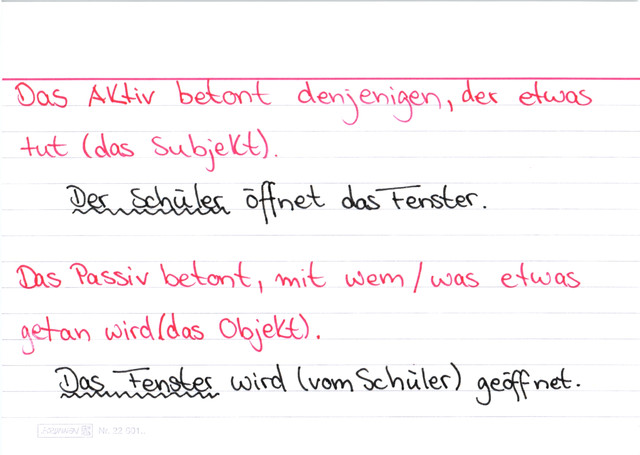 Das Aktiv betont denjenigen, der etwas
tut (das Subjekt).
Der Schüler öffnet das Fenster.
Das Passiv betont, mit wem / was etwas
getan wird (das Objekt).
Das Fenster wird (vom Schüler) geöffnet.